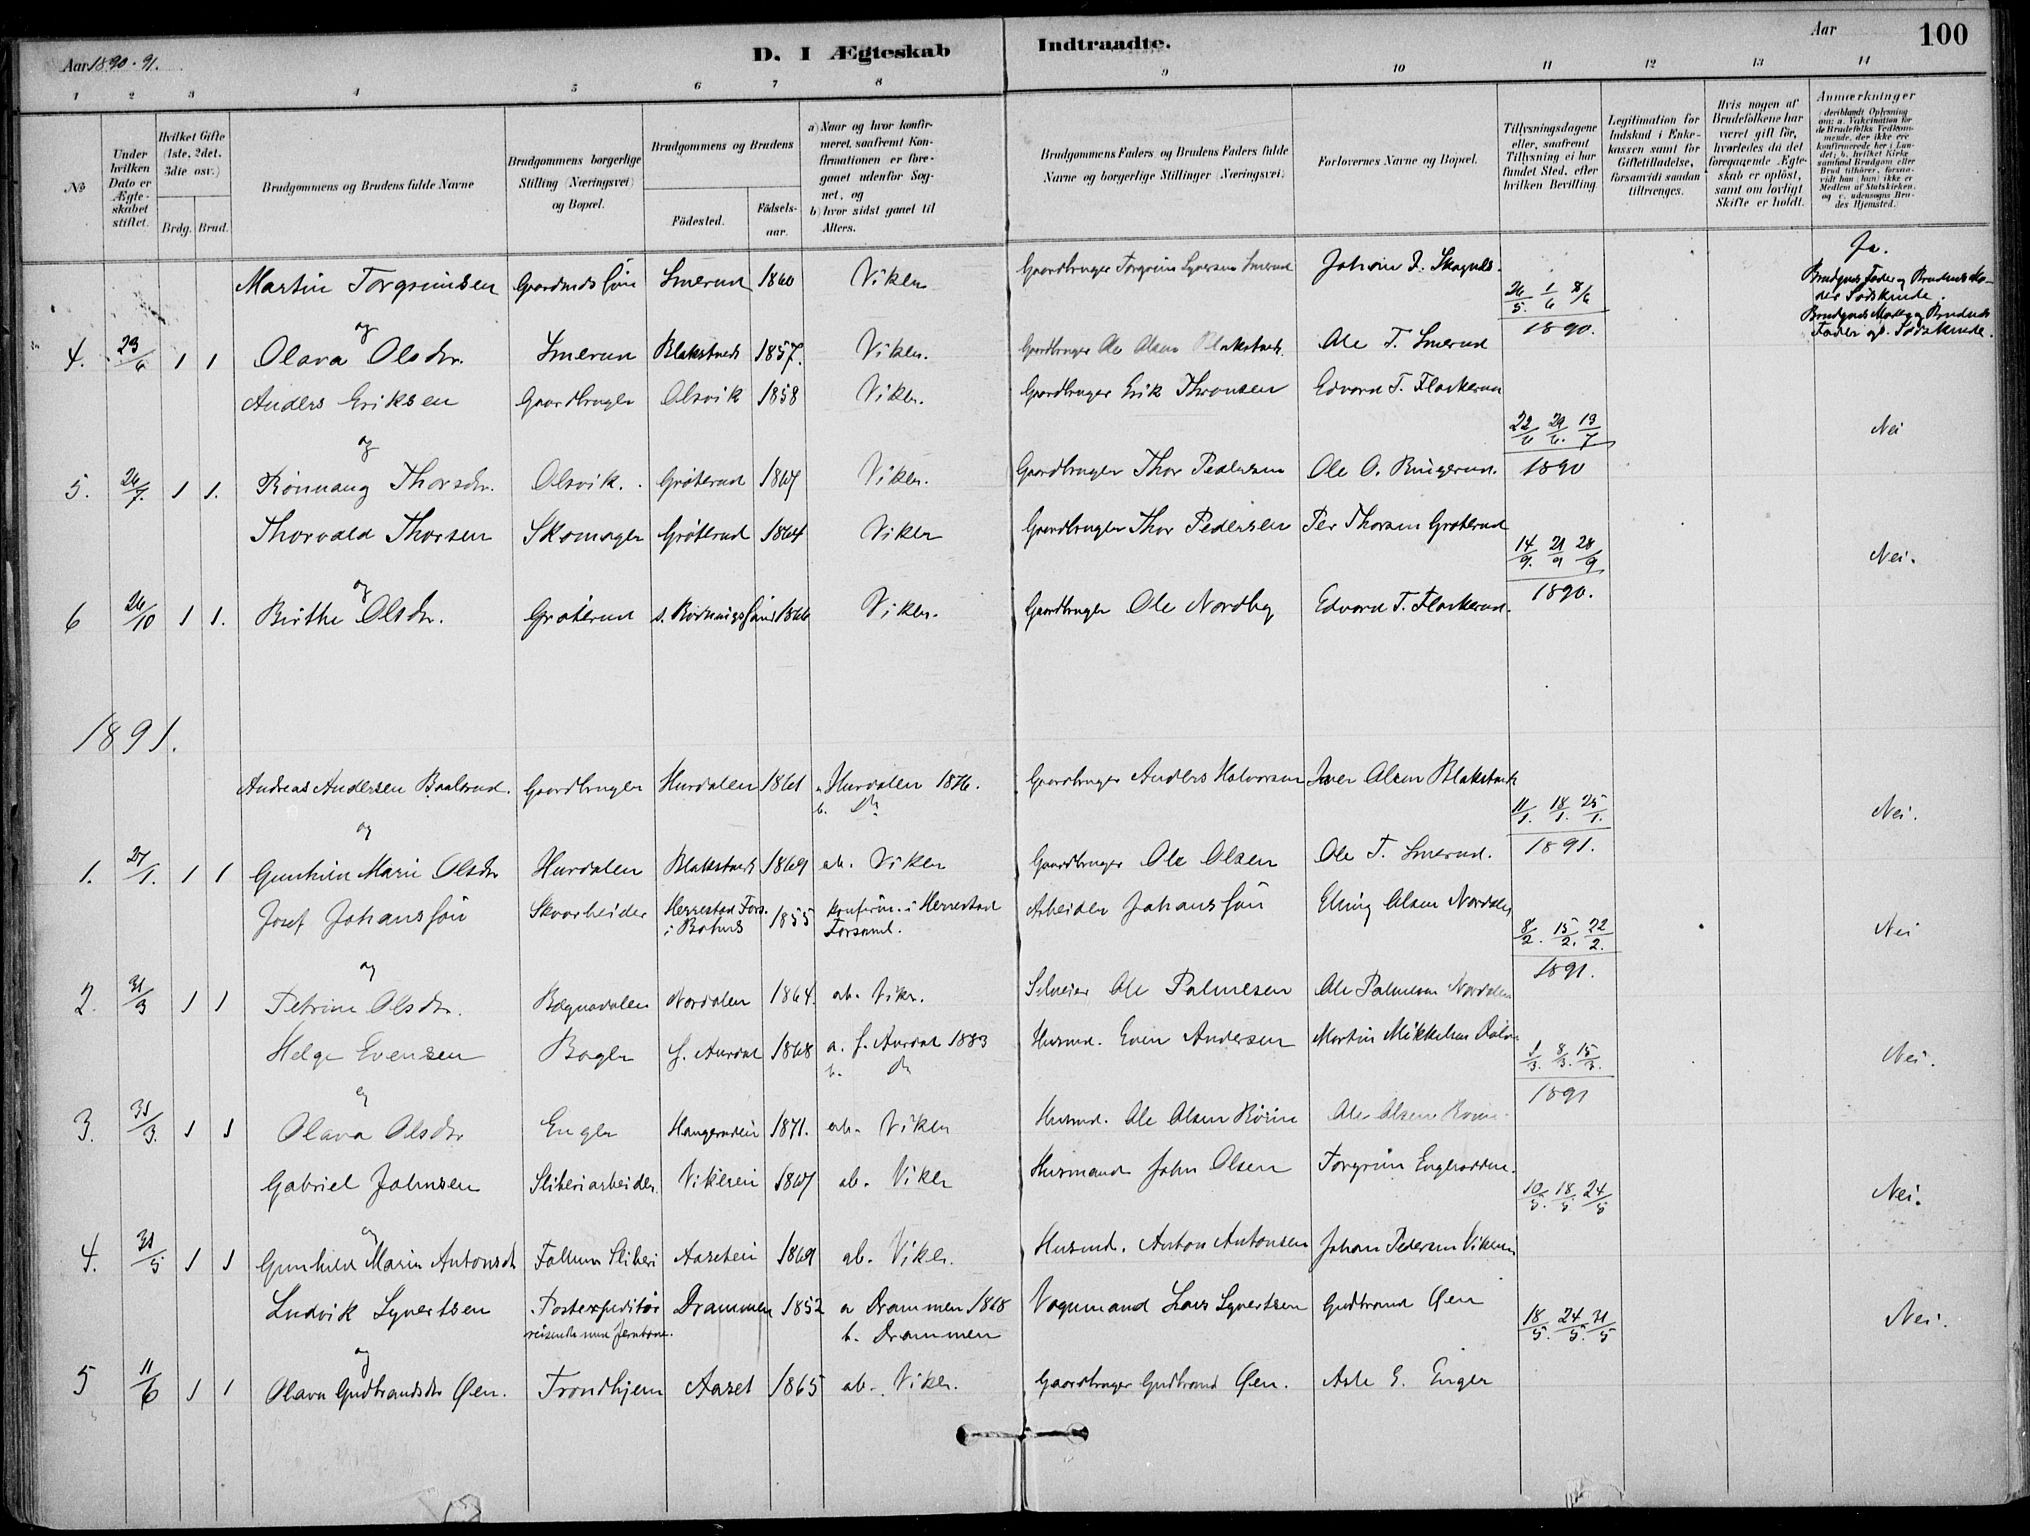 Aar 1890-91.
D. I Ægteskab Indtraadte.
Aar
100
1 2 3 4 5 6 7 8 9 10 11 12 13 14
No
Under hvilken Dato er Ægteskabet stiftet.
Hvilket Gifte (1ste, 2det, 3die osv.)
Brdg. Brud.
Brudgommens og Brudens fulde Navne
Brudgommens borgerlige Stilling (Næringsvei) og Bopæl.
Brudgommens og Brudens
Fødested.
Fødsels-aar.
a) Naar og hvor konfirmeret, saafremt Konfirmationen er foregaaet udenfor Sognet, og
b) hvor sidst gaaet til Alters.
Brudgommens Faders og Brudens Faders fulde Navne og borgerlige Stillinger (Næringsvei).
Forlovernes Navne og Bopæl.
Tillysningsdagene eller, saafremt Tillysning ei har fundet Sted, efter hvilken Bevilling.
Legitimation for Indskud i Enkekassen samt for Giftetilladelse, forsaavidt saadan tiltrænges.
Hvis nogen af Brudefolkene har været gift før, hvorledes da det foregaaende Ægteskab er opløst, samt om lovligt Skifte er holdt.
Anmærkninger (deriblandt Oplysning om: a. Vakcination for de Brudefolks Vedkommende, der ikke ere konfirmerede her i Landet; b. hvilket Kirkesamfund Brudgom eller Brud tilhører, forsaavidt han (hun) ikke er Medlem af Statskirken, og c. udensogns Brudes Hjemsted.)
Martin Torgrimsen Gaardmdssøn Smerud 1860 Viker Gaardbruger Torgrim Syversen Smerud 26/5 1/6 8/6 Ja.
og 1890.
4. 23/6 1 1 Olava Olsdr. Smerud Blakstad 1857. Viker. Gaardbruger Ole Olsen Blakstad. Ole T. Smerud
Anders Eriksen Gaardbruger Olsvik 1858 Viker. Gaardbruger Erik Thronsen Edvard T. Flaskerud
og 22/6 29/6. 13/7 Nei
5. 26/7. 1 1. Rønnaug Thorsdr. Olsvik. Grøterud 1867 Viker. Gaardbruger Thor Pedersen Ole O. Ringerud. 1890
Thorvald Thorsen Skomager Grøterud 1864 Viker Gaardbruger Thor Pedersen Per Thorsen Grøterud
og 14/9. 21/9 28/9 Nei.
6 26/10 1 1. Birthe Olsdr. Grøterud 1866 Viker. Gaardbruger Ole Nordby Edvard T. Flaskerud. 1890.
1891.
Andreas Andersen Gaardbruger Hurdalen 1861 a. Hurdalen 1876. Gaardbruger Anders Halvorsen Iver Olsen Blakstad
b. do
og 11/1. 18/1. 25/1. Nei.
1. 27/1. 1 1 Gunhild Marie Olsdr Hurdalen Blakstad 1869 ab. Viker Gaardbruger Ole Olsen Ole T. Smerud. 1891.
Josef Johansson Skoarbeider Herrestad Fors. i Bohus 1855 konfirm. i Herrestad Forsaml. Arbeider Johansson Elling Olsen Nordalen
og 8/2. 15/2. 22/2. Nei
2. 31/3 1 1 Petrine Olsdr. Bægnadalen Nordalen 1864. ab. Viker. Selveier Ole Palmesen Ole Palmesen Nordalen 1891.
Helge Evensen Bager S. Aurdal 1868 a. S. Aurdal 1883 Husmd. Even Andersen Martin Mikkelsen
b. do
og 1/3. 8/3. 15/3. Nei.
3. 31/3. 1 1 Olava Olsdr Enger Haugerudei 1871. ab. Viker Husmd. Ole Olsen 1891
Gabriel Johnsen Sliberiarbeider Vikerei 1867 ab. Viker Husmand John Olsen Torgrim Engerodden.
og 10/5. 18/5. 24/5 Nei.
4. 31/5 1 1 Gunhild Marie Antonsdr Follum Sliberi Aaseteie 1869 ab. Viker. Husmd. Anton Antonsen Johan Pedersen Vikerei
Ludvik Syvertsen Postexpeditør reisende med Jernbane. Drammen 1852 a Drammen 1868 Vognmand Lars Syvertsen Gudbrand Øen
b. Drammen
og 18/5. 24/5. 31/5 Nei.
5 11/6 1 1 Olava Gudbrandsdr Øen. Trondhjem Aaset 1865 ab. Viker. Gaardbruger Gudbrand Øen. Asle E. Enger